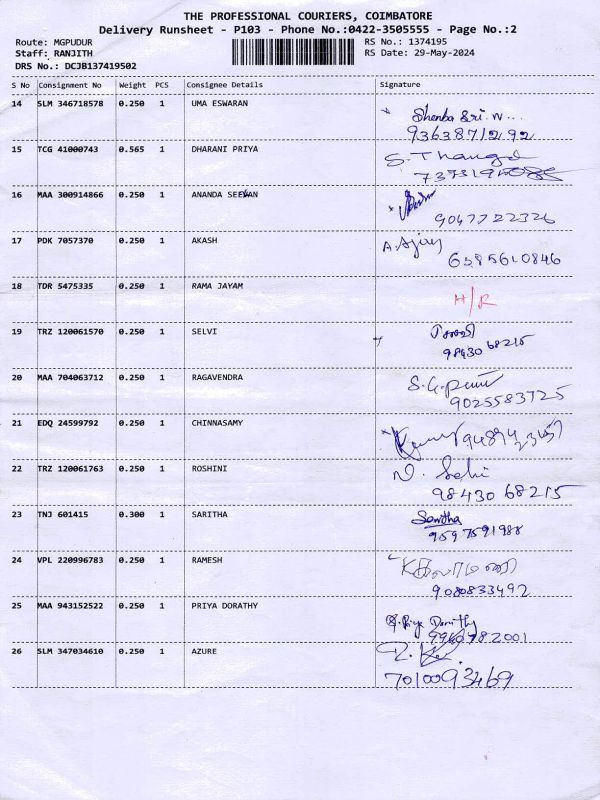 THE PROFESSIONAL COURIERS, COIMBATORE
Delivery Runsheet - P103 - Phone No.:0422-3505555 - Page No.:2
Route: MGPUDUR RS No.: 1374195
Staff: RANJITH RS Date: 29-May-2024
DRS No.: DCJB137419502
S No Consignment No Weight PCS Consignee Details Signature
14 SLM 346718578 0.250 1 UMA ESWARAN
Dhenba Sri. N...
9363871292
15 TCG 41000743 0.565 1 DHARANI PRIYA
S. Thanga
16 MAA 300914866 0.250 1 ANANDA SEEWAN
9047722326
17 PDK 7057370 0.250 1 AKASH
A. Ajay
6385610846
18 TDR 5475335 0.250 1 RAMA JAYAM
H/R
19 TRZ 120061570 0.250 1 SELVI
98430 68215
20 MAA 704063712 0.250 1 RAGAVENDRA
9025583725
21 EDQ 24599792 0.250 1 CHINNASAMY
22 TRZ 120061763 0.250 1 ROSHINI
98430 68215
23 TNJ 601415 0.300 1 SARITHA
Saritha
9597591988
24 VPL 220996783 0.250 1 RAMESH
9080833492
25 MAA 943152522 0.250 1 PRIYA DORATHY
26 SLM 347034610 0.250 1 AZURE
7010093469